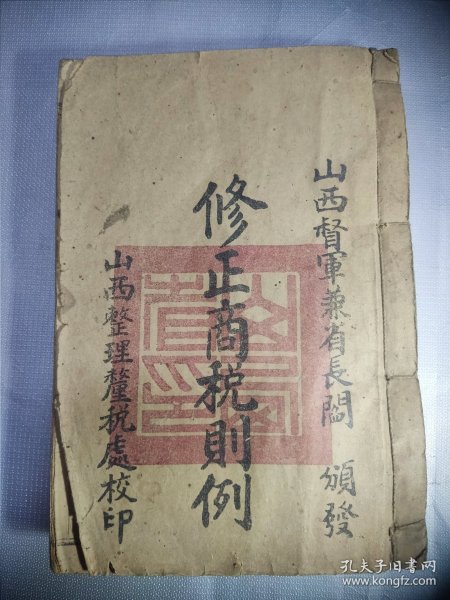 山西督軍兼省長閻 頒發
修正商税則例
山西整理釐税處校印
孔夫子旧书网
www.kongfz.com